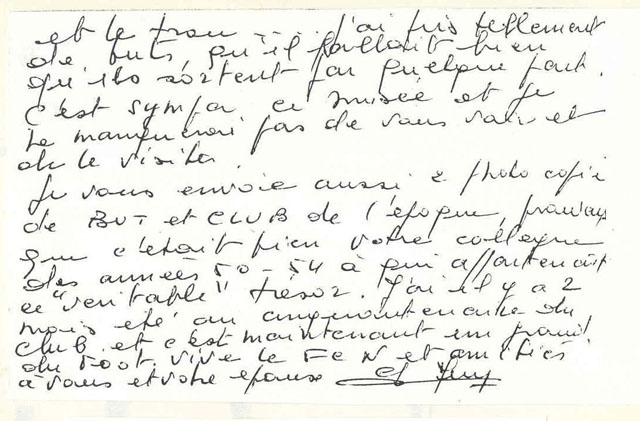 et le trou ... j'ai pris tellement
de buts qu'il fallait bien
qu'ils sortent par quelque part.
c'est sympa ce musée et je
ne manquerai pas de vous voir et
de le visiter.
Je vous envoie aussi 2 photo copie
de BUT et CLUB de l'époque, 
que c'était bien votre collègue
des années 50-54 à qui appartenait
ce "veritable" trésor. J'ai il y a 2
mois été au du
club et c'est maintenant un
du Foot. vive le FCN et amitiés
à vous et votre épouse